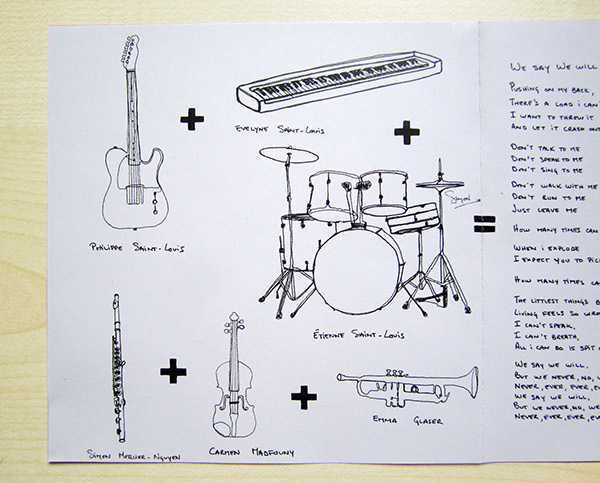 Philippe Saint-Louis
Evelyne Saint-Louis
Simon
Étienne Saint-Louis
Simon Mercier-Nguyen
Carmen Madfouny
Emma Glaser
We say we will
Pushing on my back,
There's a load i can'
I want to threw it
And let it crash out
Don't talk to me
Don't speak to me
Don't sing to me
Don't walk with me
Don't run to me
Just leave me
How many times can
When i explode
I expect you to pic
How many times ca
The littlest things b
Living feels so wr
I can't speak,
I can't breath,
All i can do is spit
We say we will.
But we never, no,
Never, ever, ever, e
We say we will,
But we never, no, we
Never, ever, ever, ev